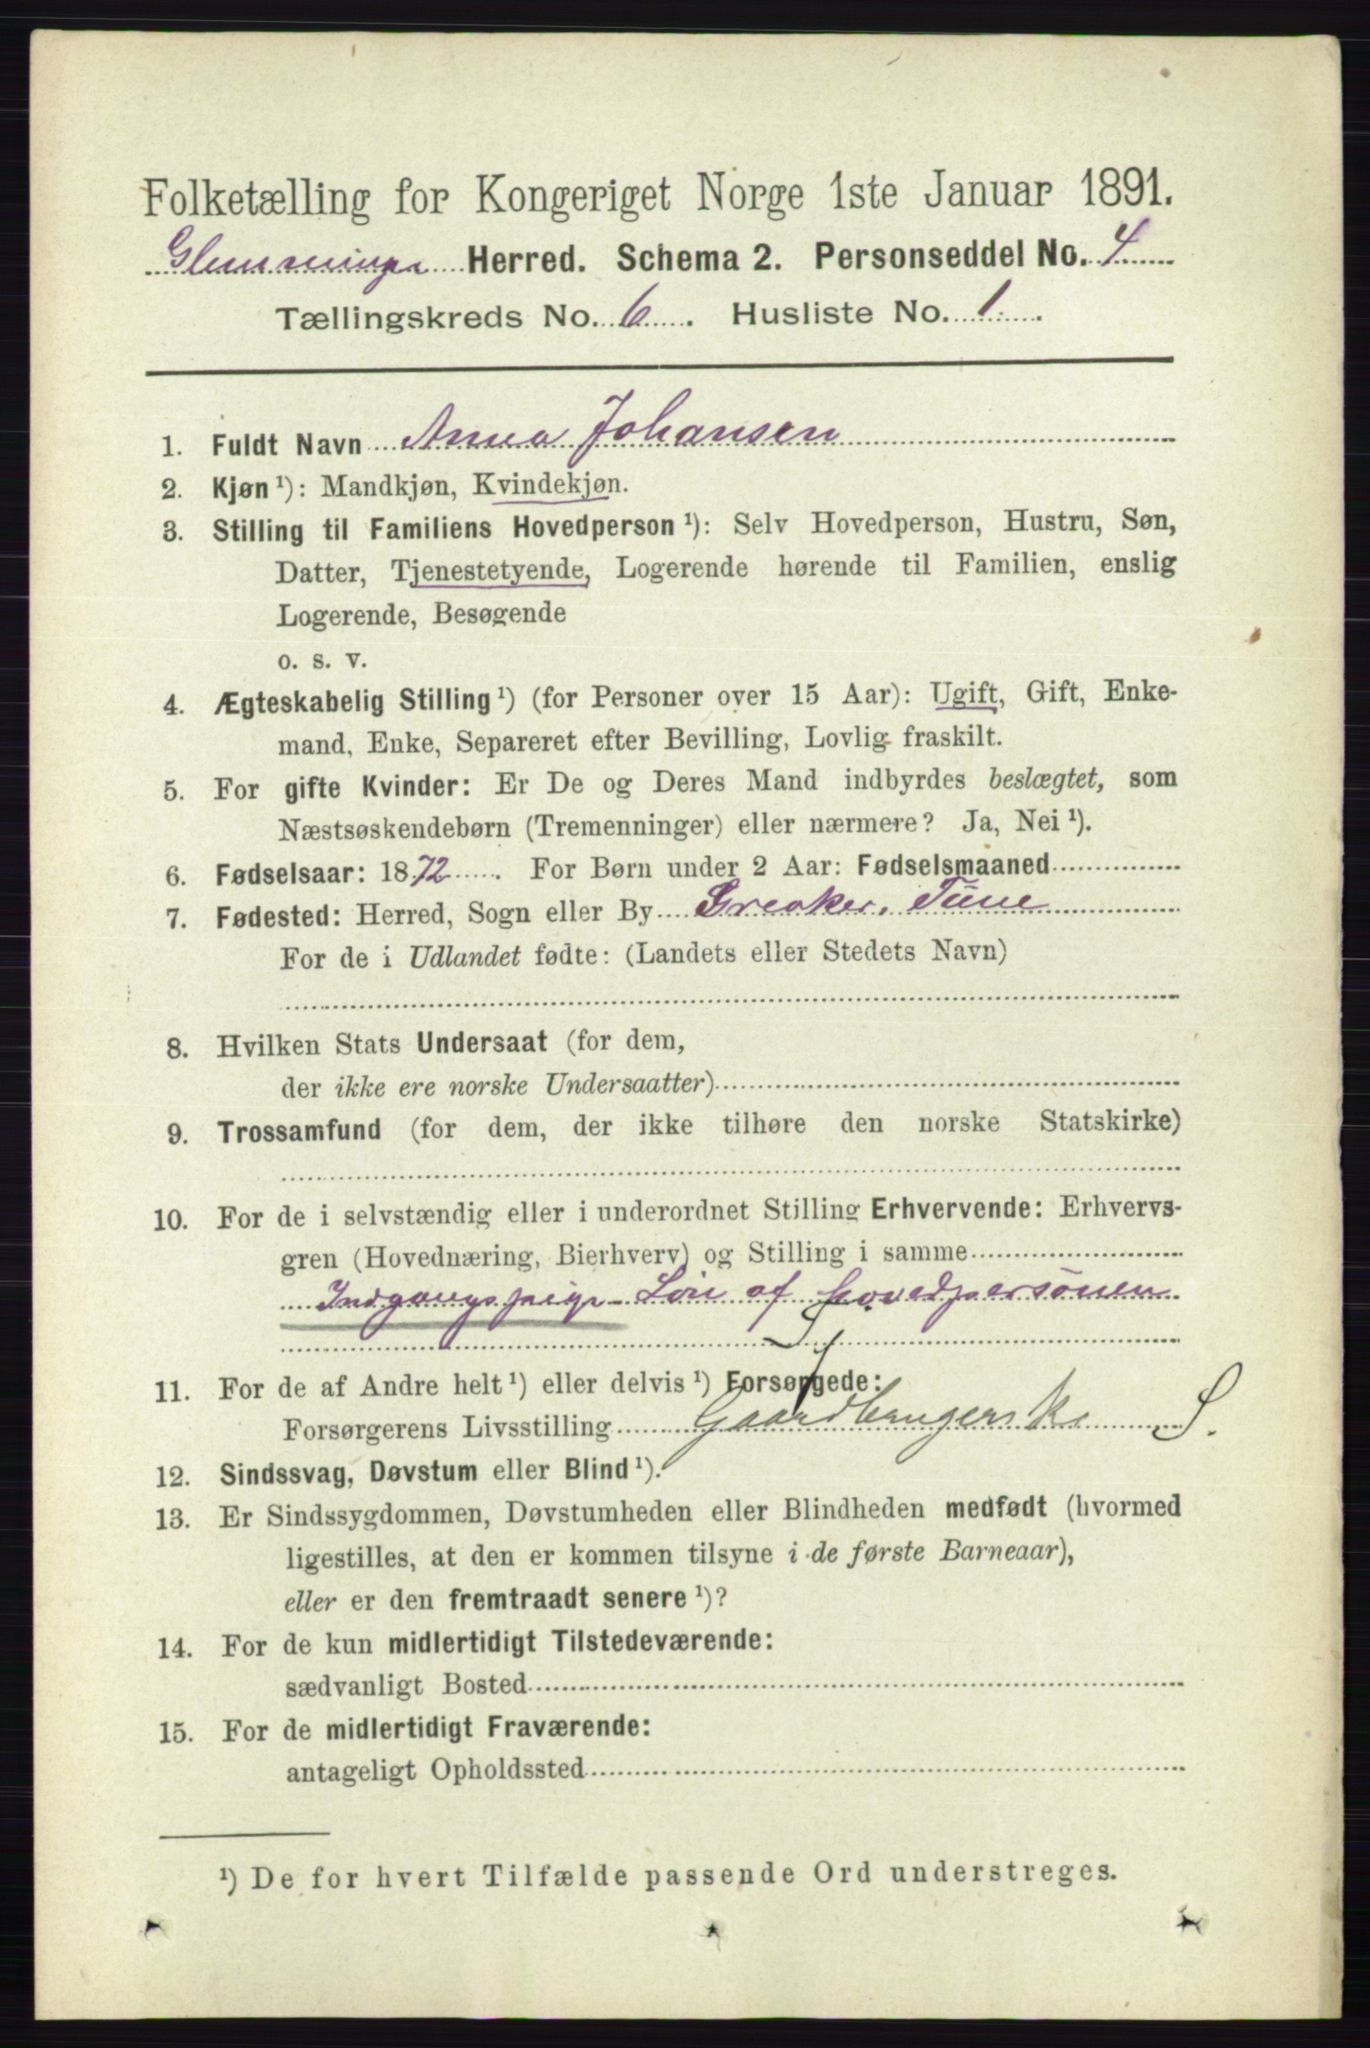 Folketælling for Kongeriget Norge 1ste Januar 1891.
Glemminge Herred. Schema 2. Personseddel No. 4
Tællingskreds No. 6. Husliste No. 1.
1. Fuldt Navn Anna Johansen
2. Kjøn ¹): Mandkjøn, Kvindekjøn.
3. Stilling til Familiens Hovedperson ¹): Selv Hovedperson, Hustru, Søn,
Datter, Tjenestetyende, Logerende hørende til Familien, enslig
Logerende, Besøgende
o. s. v.
4. Ægteskabelig Stilling ¹) (for Personer over 15 Aar): Ugift, Gift, Enke-
mand, Enke, Separeret efter Bevilling, Lovlig fraskilt.
5. For gifte Kvinder: Er De og Deres Mand indbyrdes beslægtet, som
Næstsøskendebørn (Tremenninger) eller nærmere? Ja, Nei ¹).
6. Fødselsaar: 1872. For Børn under 2 Aar: Fødselsmaaned
7. Fødested: Herred, Sogn eller By Greaker, Tune
For de i Udlandet fødte: (Landets eller Stedets Navn)
8. Hvilken Stats Undersaat (for dem,
der ikke ere norske Undersaatter)
9. Trossamfund (for dem, der ikke tilhøre den norske Statskirke)
10. For de i selvstændig eller i underordnet Stilling Erhvervende: Erhvervs-
gren (Hovednæring, Bierhverv) og Stilling i samme
Indgangspige Løn af hovedpersonen
11. For de af Andre helt ¹) eller delvis ¹) Forsørgede:
Forsørgerens Livsstilling Gaardbrugerske S.
12. Sindssvag, Døvstum eller Blind ¹).
13. Er Sindssygdommen, Døvstumheden eller Blindheden medfødt (hvormed
ligestilles, at den er kommen tilsyne i de første Barneaar),
eller er den fremtraadt senere ¹)?
14. For de kun midlertidigt Tilstedeværende:
sædvanligt Bosted
15. For de midlertidigt Fraværende:
antageligt Opholdssted
¹) De for hvert Tilfælde passende Ord understreges.